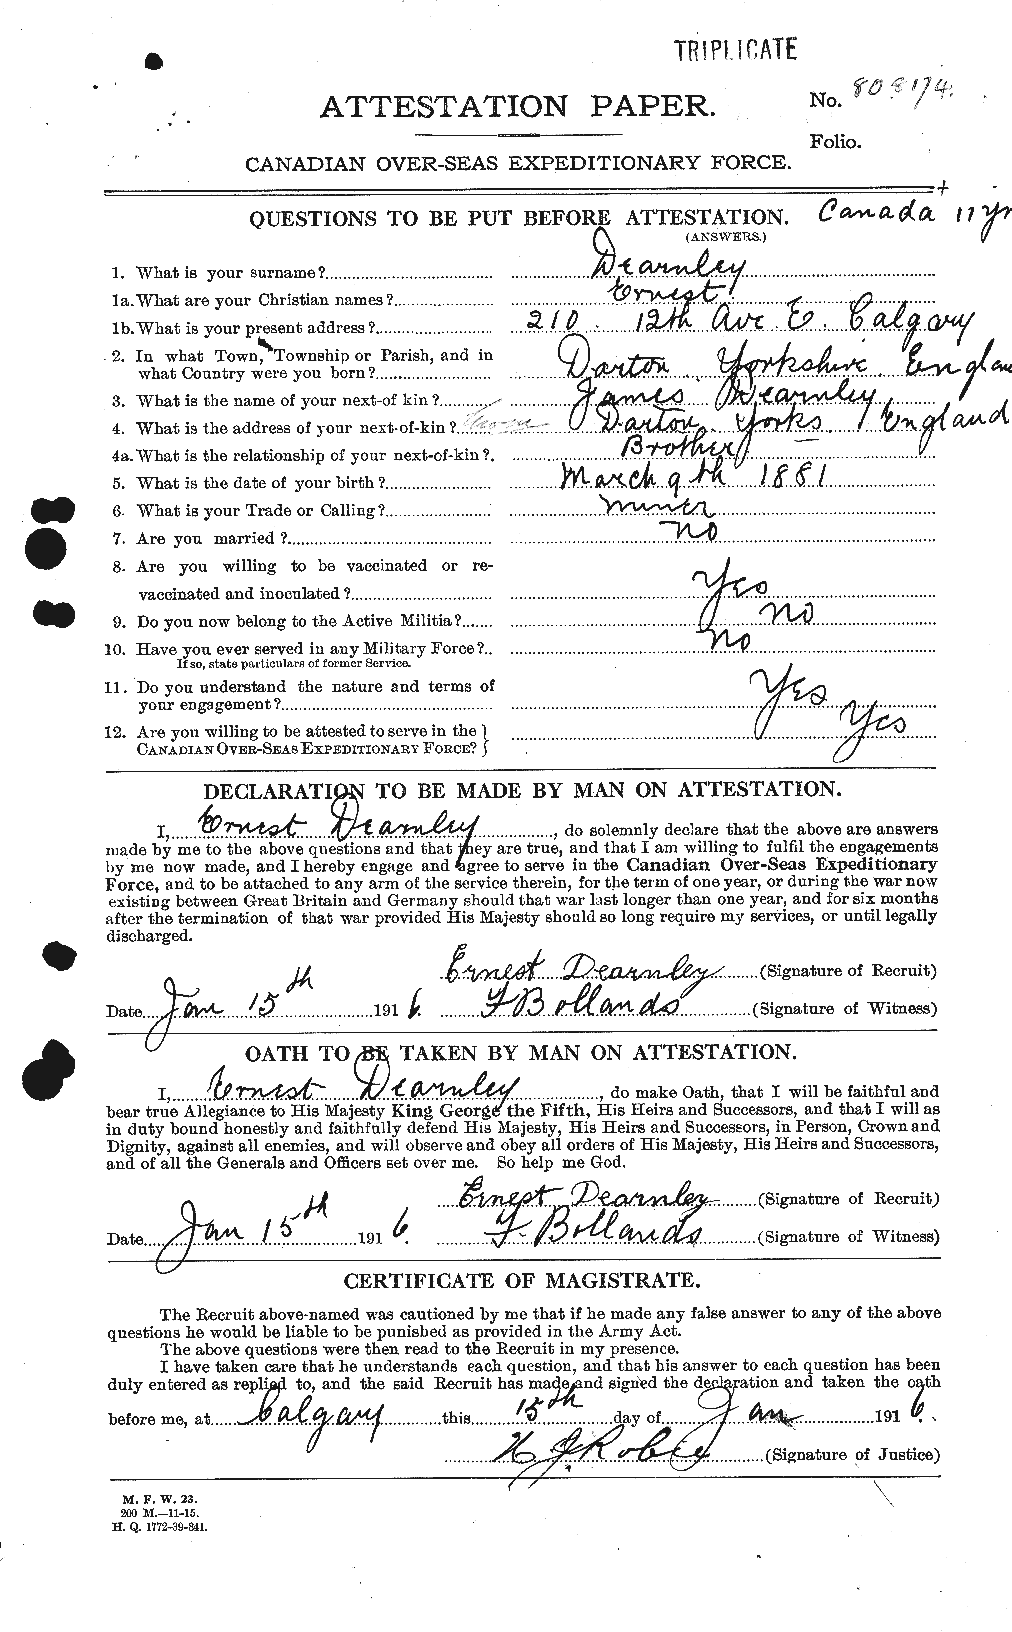 TRIPLICATE
No. 808174
ATTESTATION PAPER.
Folio.
CANADIAN OVER-SEAS EXPEDITIONARY FORCE.
QUESTIONS TO BE PUT BEFORE ATTESTATION. Canada 11 yr
(ANSWERS.)
1. What is your surname? Dearnley
1a. What are your Christian names? Ernest
1b. What is your present address? 210 12th Ave E. Calgary
2. In what Town, Township or Parish, and in
what Country were you born? Darton Yorkshire England
3. What is the name of your next-of kin? James Dearnley
4. What is the address of your next-of-kin? Darton Yorks England
4a. What is the relationship of your next-of-kin? Brother
5. What is the date of your birth? March 9th 1881
6. What is your Trade or Calling? Miner
7. Are you married? No
8. Are you willing to be vaccinated or re-
vaccinated and inoculated? Yes
9. Do you now belong to the Active Militia? No
10. Have you ever served in any Military Force? No
If so, state particulars of former Service.
11. Do you understand the nature and terms of
your engagement? Yes
12. Are you willing to be attested to serve in the
CANADIAN OVER-SEAS EXPEDITIONARY FORCE? Yes
DECLARATION TO BE MADE BY MAN ON ATTESTATION.
I, Ernest Dearnley, do solemnly declare that the above are answers
made by me to the above questions and that they are true, and that I am willing to fulfil the engagements
by me now made, and I hereby engage and agree to serve in the Canadian Over-Seas Expeditionary
Force, and to be attached to any arm of the service therein, for the term of one year, or during the war now
existing between Great Britain and Germany should that war last longer than one year, and for six months
after the termination of that war provided His Majesty should so long require my services, or until legally
discharged.
Ernest Dearnley (Signature of Recruit)
Date Jan 15th 1916. F Bollands (Signature of Witness)
OATH TO BE TAKEN BY MAN ON ATTESTATION.
I, Ernest Dearnley, do make Oath, that I will be faithful and
bear true Allegiance to His Majesty King George the Fifth, His Heirs and Successors, and that I will as
in duty bound honestly and faithfully defend His Majesty, His Heirs and Successors, in Person, Crown and
Dignity, against all enemies, and will observe and obey all orders of His Majesty, His Heirs and Successors,
and of all the Generals and Officers set over me. So help me God.
Ernest Dearnley (Signature of Recruit)
Date Jan 15th 1916. F. Bollands (Signature of Witness)
CERTIFICATE OF MAGISTRATE.
The Recruit above-named was cautioned by me that if he made any false answer to any of the above
questions he would be liable to be punished as provided in the Army Act.
The above questions were then read to the Recruit in my presence.
I have taken care that he understands each question, and that his answer to each question has been
duly entered as replied to, and the said Recruit has made and signed the declaration and taken the oath
before me, at Calgary this 15th day of Jan 1916.
(Signature of Justice)
M. F. W. 23.
200 M.—11-15.
H. Q. 1772-39-841.